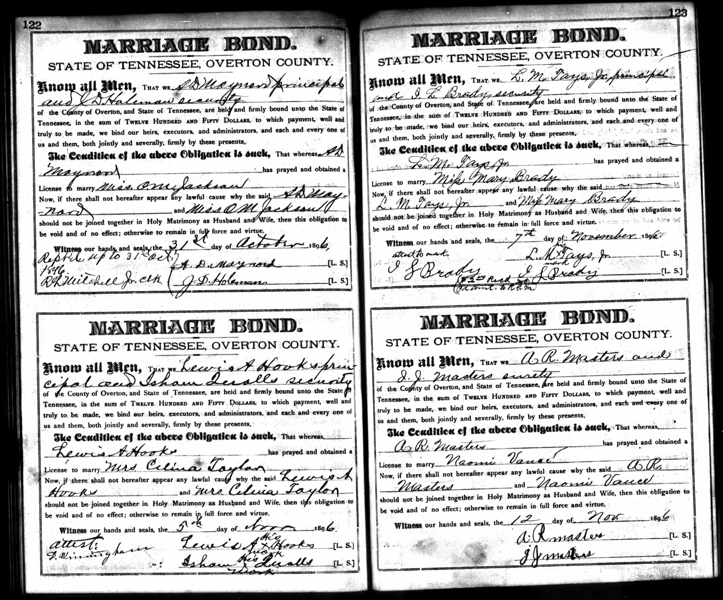 122
MARRIAGE BOND.
STATE OF TENNESSEE, OVERTON COUNTY.
Know all Men, THAT WE S D Maynord principal
and J D Holeman security
of the County of Overton, and State of Tennessee, are held and firmly bound unto the State of
Tennessee, in the sum of TWELVE HUNDRED AND FIFTY DOLLARS, to which payment, well and
truly to be made, we bind our heirs, executors, and administrators, and each and every one of
us and them, both jointly and severally, firmly by these presents,
The Condition of the above Obligation is such, That whereas, S D
Maynord has prayed and obtained a
License to marry Miss O M Jackson
Now, if there shall not hereafter appear any lawful cause why the said S D May-
nord and Miss O M Jackson
should not be joined together in Holy Matrimony as Husband and Wife, then this obligation to
be void and of no effect; otherwise to remain in full force and virtue.
Witness our hands and seals, the 31st day of October 1896.
up to 31st Oct
1896 S. D. Maynord [L. S.]
Mitchell Jr clk J. D. Holeman [L. S.]
MARRIAGE BOND.
STATE OF TENNESSEE, OVERTON COUNTY.
Know all Men, THAT WE Lewis A Hooks prin
cipal and Isham Qualls security
of the County of Overton, and State of Tennessee, are held and firmly bound unto the State of
Tennessee, in the sum of TWELVE HUNDRED AND FIFTY DOLLARS, to which payment, well and
truly to be made, we bind our heirs, executors, and administrators, and each and every one of
us and them, both jointly and severally, firmly by these presents,
The Condition of the above Obligation is such, That whereas,
Lewis A Hooks has prayed and obtained a
License to marry Mrs Celina Taylor
Now, if there shall not hereafter appear any lawful cause why the said Lewis A
Hooks and Mrs Celina Taylor
should not be joined together in Holy Matrimony as Husband and Wife, then this obligation to
be void and of no effect; otherwise to remain in full force and virtue.
Witness our hands and seals, the 5th day of Nov 1896
attest: Lewis A his x mark Hooks [L. S.]
Winningham Isham his x mark Qualls [L. S.]
123
MARRIAGE BOND.
STATE OF TENNESSEE, OVERTON COUNTY.
Know all Men, THAT WE L. M. Tays, Jr, principal
and I. L. Brady security
of the County of Overton, and State of Tennessee, are held and firmly bound unto the State of
Tennessee, in the sum of TWELVE HUNDRED AND FIFTY DOLLARS, to which payment, well and
truly to be made, we bind our heirs, executors, and administrators, and each and every one of
us and them, both jointly and severally, firmly by these presents,
The Condition of the above Obligation is such, That whereas
L. M. Tays, Jr. has prayed and obtained a
License to marry Miss Mary Brady
Now, if there shall not hereafter appear any lawful cause why the said
L. M. Tays, Jr. and Miss Mary Brady
should not be joined together in Holy Matrimony as Husband and Wife, then this obligation to
be void and of no effect; otherwise to remain in full force and virtue.
Witness our hands and seals, the 7th day of November 1896
attest to mark L. M. Tays, Jr [L. S.]
Brady Brady [L. S.]
MARRIAGE BOND.
STATE OF TENNESSEE, OVERTON COUNTY.
Know all Men, THAT WE A. R. Masters and
J. J. Masters surety
of the County of Overton, and State of Tennessee, are held and firmly bound unto the State of
Tennessee, in the sum of TWELVE HUNDRED AND FIFTY DOLLARS, to which payment, well and
truly to be made, we bind our heirs, executors, and administrators, and each and every one of
us and them, both jointly and severally, firmly by these presents,
The Condition of the above Obligation is such, That whereas,
A R. Masters has prayed and obtained a
License to marry Naomi Vance
Now, if there shall not hereafter appear any lawful cause why the said A. R.
Masters and Naomi Vance
should not be joined together in Holy Matrimony as Husband and Wife, then this obligation to
be void and of no effect; otherwise to remain in full force and virtue.
Witness our hands and seals, the 12 day of Nov 1896
A. R masters [L. S.]
J J masters [L. S.]